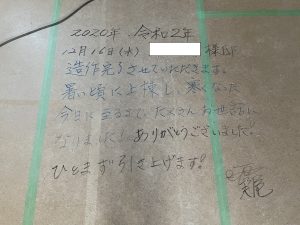 2020年 令和2年
12月16日(水) 様邸
造作完了させていただきます。
暑い頃に上棟し、寒くなった
今日に至るまで、たくさんお世話に
なりました。ありがとうございました。
ひとまず引き上げます!